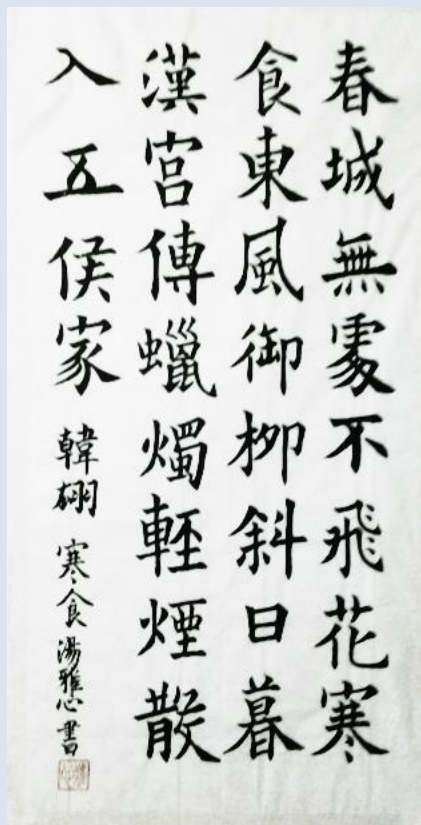 春城無處不飛花寒
食東風御柳斜日暮
漢宮傳蠟燭輕煙散
入五侯家
韓翃 寒食 湯雅心書